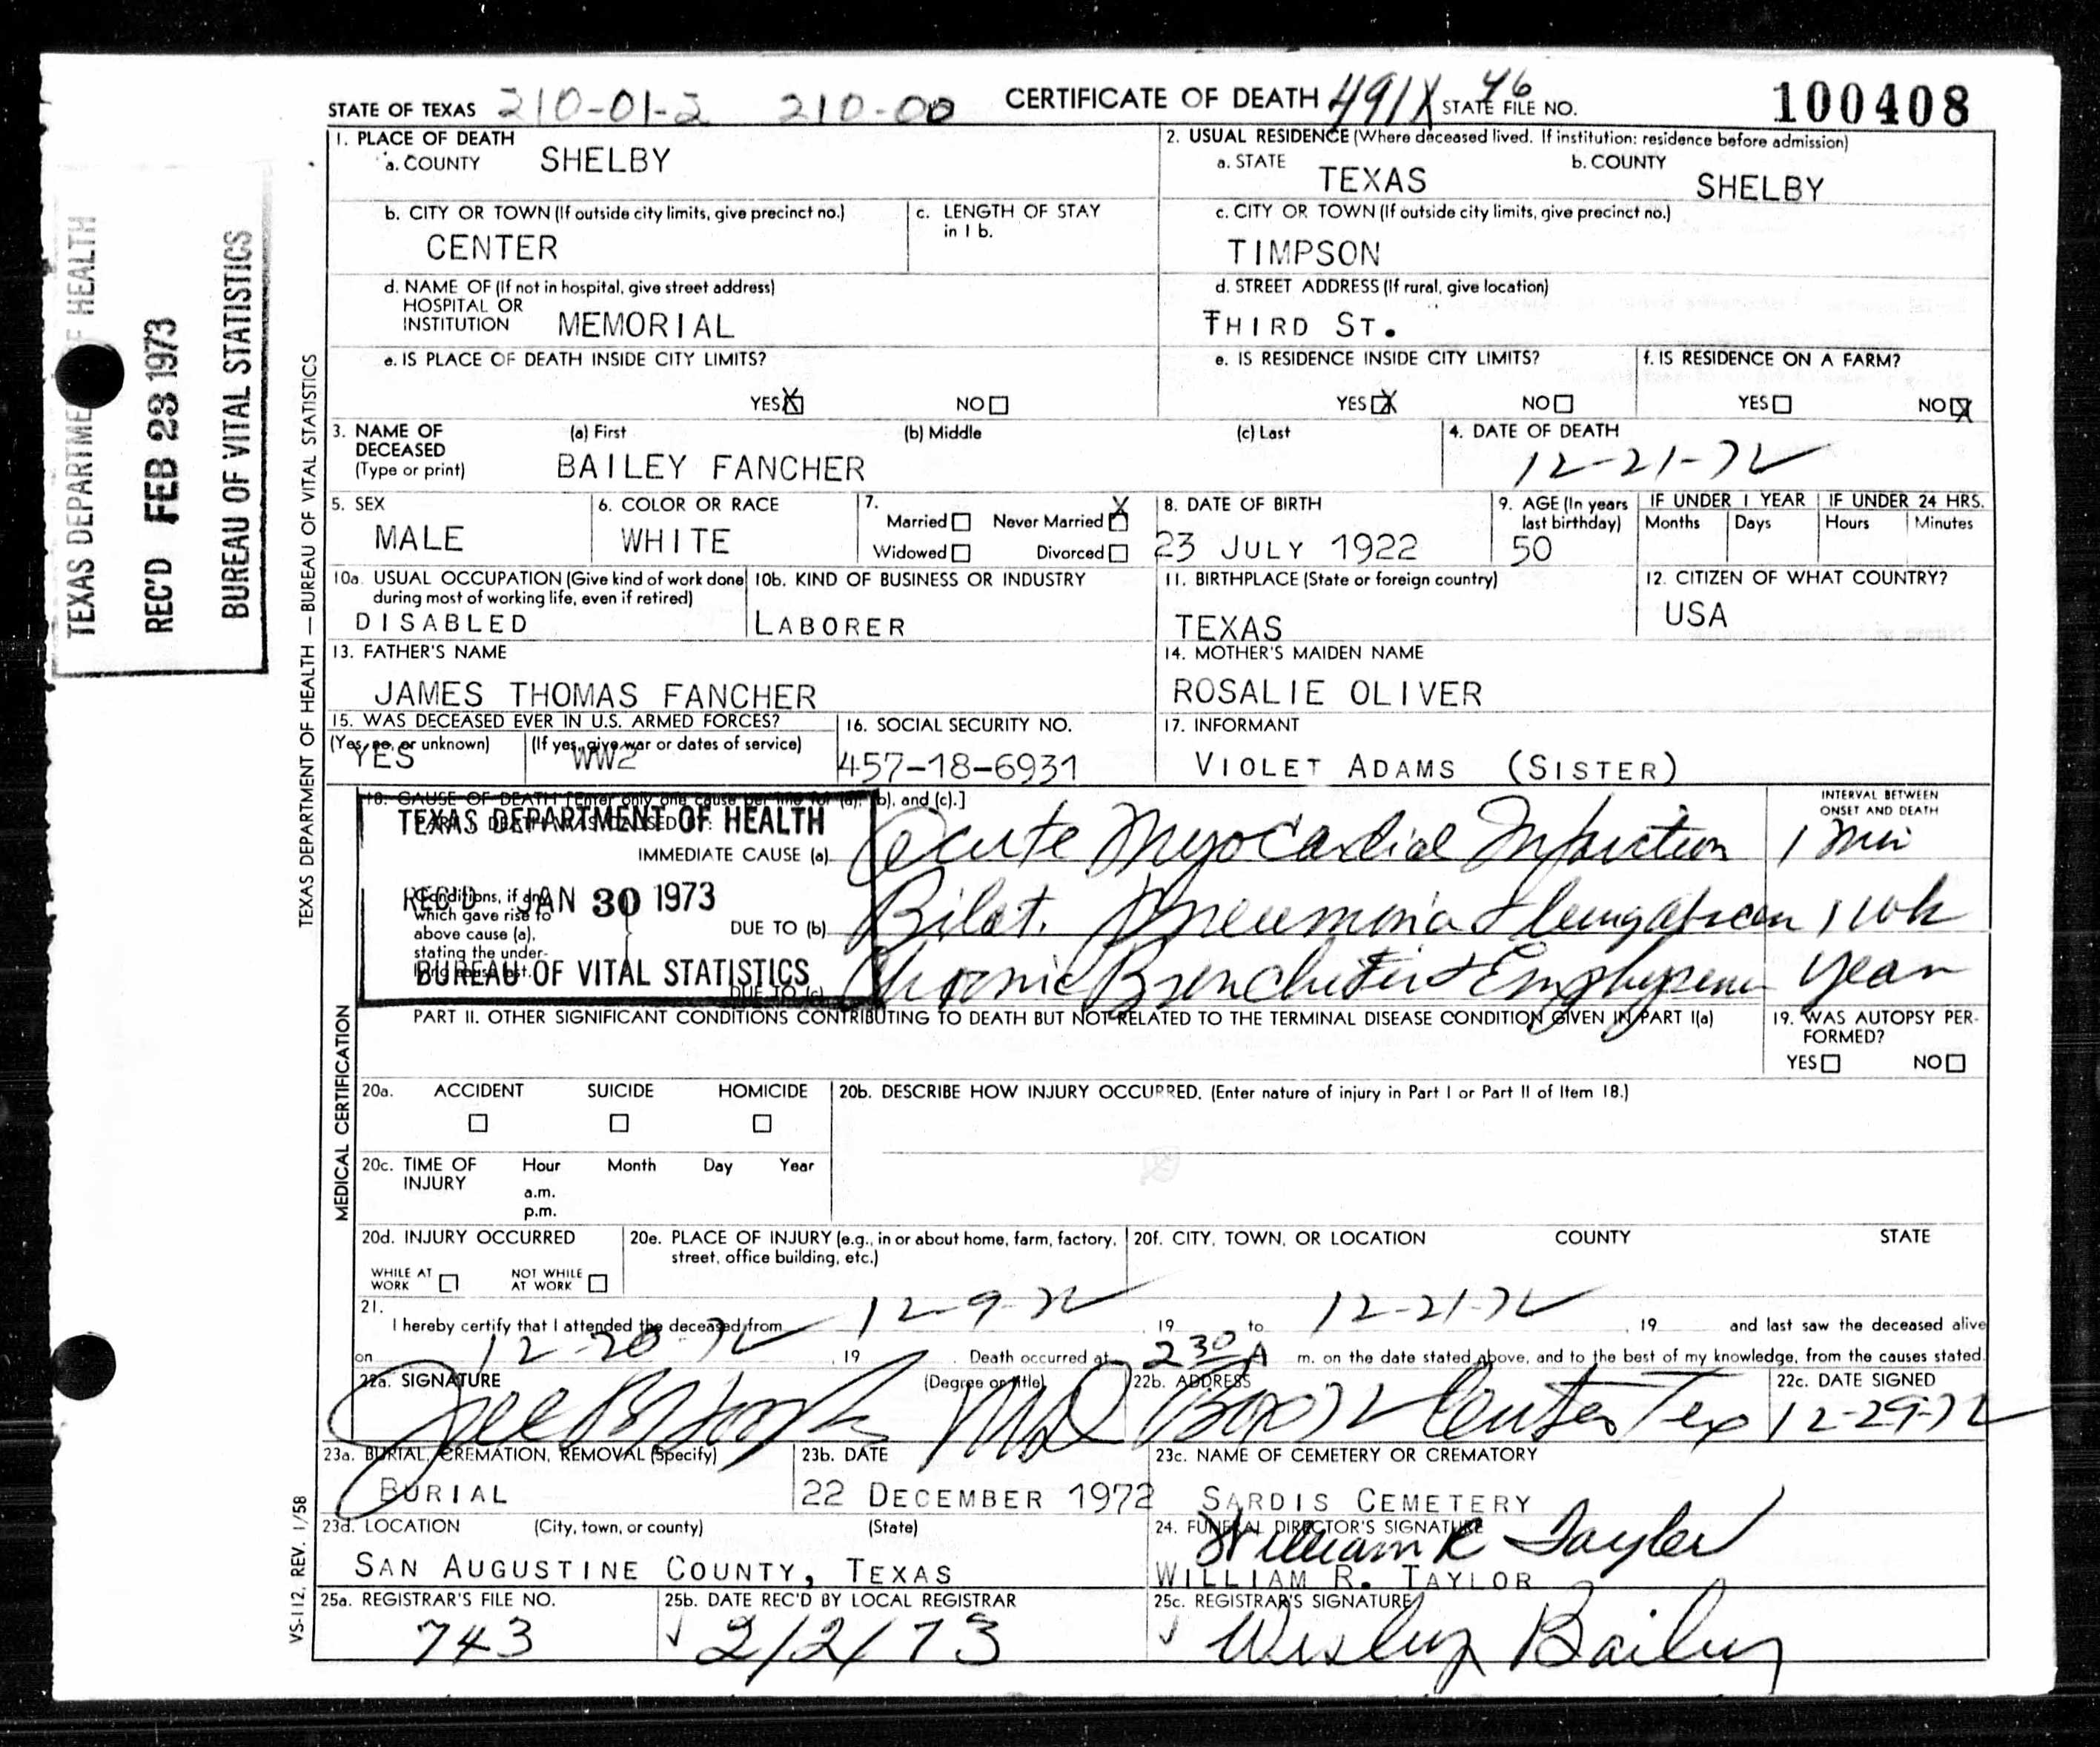 STATE OF TEXAS 210-01-2 210-00 CERTIFICATE OF DEATH 491X 46 STATE FILE NO. 100408
1. PLACE OF DEATH
a. COUNTY SHELBY
2. USUAL RESIDENCE (Where deceased lived. If institution: residence before admission)
a. STATE TEXAS b. COUNTY SHELBY
b. CITY OR TOWN (If outside city limits, give precinct no.)
CENTER
c. LENGTH OF STAY
in 1 b.
c. CITY OR TOWN (If outside city limits, give precinct no.)
TIMPSON
d. NAME OF (If not in hospital, give street address)
HOSPITAL OR
INSTITUTION MEMORIAL
d. STREET ADDRESS (If rural, give location)
THIRD ST.
e. IS PLACE OF DEATH INSIDE CITY LIMITS?
YES X NO
e. IS RESIDENCE INSIDE CITY LIMITS?
YES X NO
f. IS RESIDENCE ON A FARM?
YES NO X
3. NAME OF
DECEASED
(Type or print)
(a) First (b) Middle (c) Last
BAILEY FANCHER
4. DATE OF DEATH
12-21-72
5. SEX
MALE
6. COLOR OR RACE
WHITE
7.
Married Never Married X
Widowed Divorced
8. DATE OF BIRTH
23 JULY 1922
9. AGE (In years
last birthday)
50
IF UNDER 1 YEAR
Months Days
IF UNDER 24 HRS.
Hours Minutes
10a. USUAL OCCUPATION (Give kind of work done
during most of working life, even if retired)
DISABLED
10b. KIND OF BUSINESS OR INDUSTRY
LABORER
11. BIRTHPLACE (State or foreign country)
TEXAS
12. CITIZEN OF WHAT COUNTRY?
USA
13. FATHER'S NAME
JAMES THOMAS FANCHER
14. MOTHER'S MAIDEN NAME
ROSALIE OLIVER
15. WAS DECEASED EVER IN U.S. ARMED FORCES?
(Yes, no, or unknown) (If yes, give war or dates of service)
YES WW2
16. SOCIAL SECURITY NO.
457-18-6931
17. INFORMANT
VIOLET ADAMS (SISTER)
18. CAUSE OF DEATH [Enter only one cause per line for (a), (b), and (c).]
INTERVAL BETWEEN
ONSET AND DEATH
TEXAS DEPARTMENT OF HEALTH
REC'D JAN 30 1973
BUREAU OF VITAL STATISTICS
IMMEDIATE CAUSE (a) Acute Myocardial Infarction 1 Min
Conditions, if any
which gave rise to
above cause (a),
stating the under-
lying cause last.
DUE TO (b) Bilat. Pneumonia & lung abscess 1 wk
DUE TO (c) Chronic Bronchitis & Emphysema year
PART II. OTHER SIGNIFICANT CONDITIONS CONTRIBUTING TO DEATH BUT NOT RELATED TO THE TERMINAL DISEASE CONDITION GIVEN IN PART I(a)
19. WAS AUTOPSY PER-
FORMED?
YES NO
20a. ACCIDENT SUICIDE HOMICIDE
20b. DESCRIBE HOW INJURY OCCURRED. (Enter nature of injury in Part I or Part II of Item 18.)
20c. TIME OF
INJURY
Hour Month Day Year
a.m.
p.m.
20d. INJURY OCCURRED
WHILE AT
WORK
NOT WHILE
AT WORK
20e. PLACE OF INJURY (e.g., in or about home, farm, factory,
street, office building, etc.)
20f. CITY, TOWN, OR LOCATION COUNTY STATE
21.
I hereby certify that I attended the deceased from 12-9-72, 19 to 12-21-72, 19 and last saw the deceased alive
on 12-20-72, 19 . Death occurred at 230 A m. on the date stated above, and to the best of my knowledge, from the causes stated.
22a. SIGNATURE (Degree or title)
MD
22b. ADDRESS
Center Tex
22c. DATE SIGNED
12-29-72
23a. BURIAL, CREMATION, REMOVAL (Specify)
BURIAL
23b. DATE
22 DECEMBER 1972
23c. NAME OF CEMETERY OR CREMATORY
SARDIS CEMETERY
23d. LOCATION (City, town, or county) (State)
SAN AUGUSTINE COUNTY, TEXAS
24. FUNERAL DIRECTOR'S SIGNATURE
William R Taylor
WILLIAM R. TAYLOR
25a. REGISTRAR'S FILE NO.
743
25b. DATE REC'D BY LOCAL REGISTRAR
2/2/73
25c. REGISTRAR'S SIGNATURE
Wesley Bailey
TEXAS DEPARTMENT OF HEALTH
REC'D FEB 23 1973
BUREAU OF VITAL STATISTICS
TEXAS DEPARTMENT OF HEALTH — BUREAU OF VITAL STATISTICS
MEDICAL CERTIFICATION
VS-112, REV. 1/58